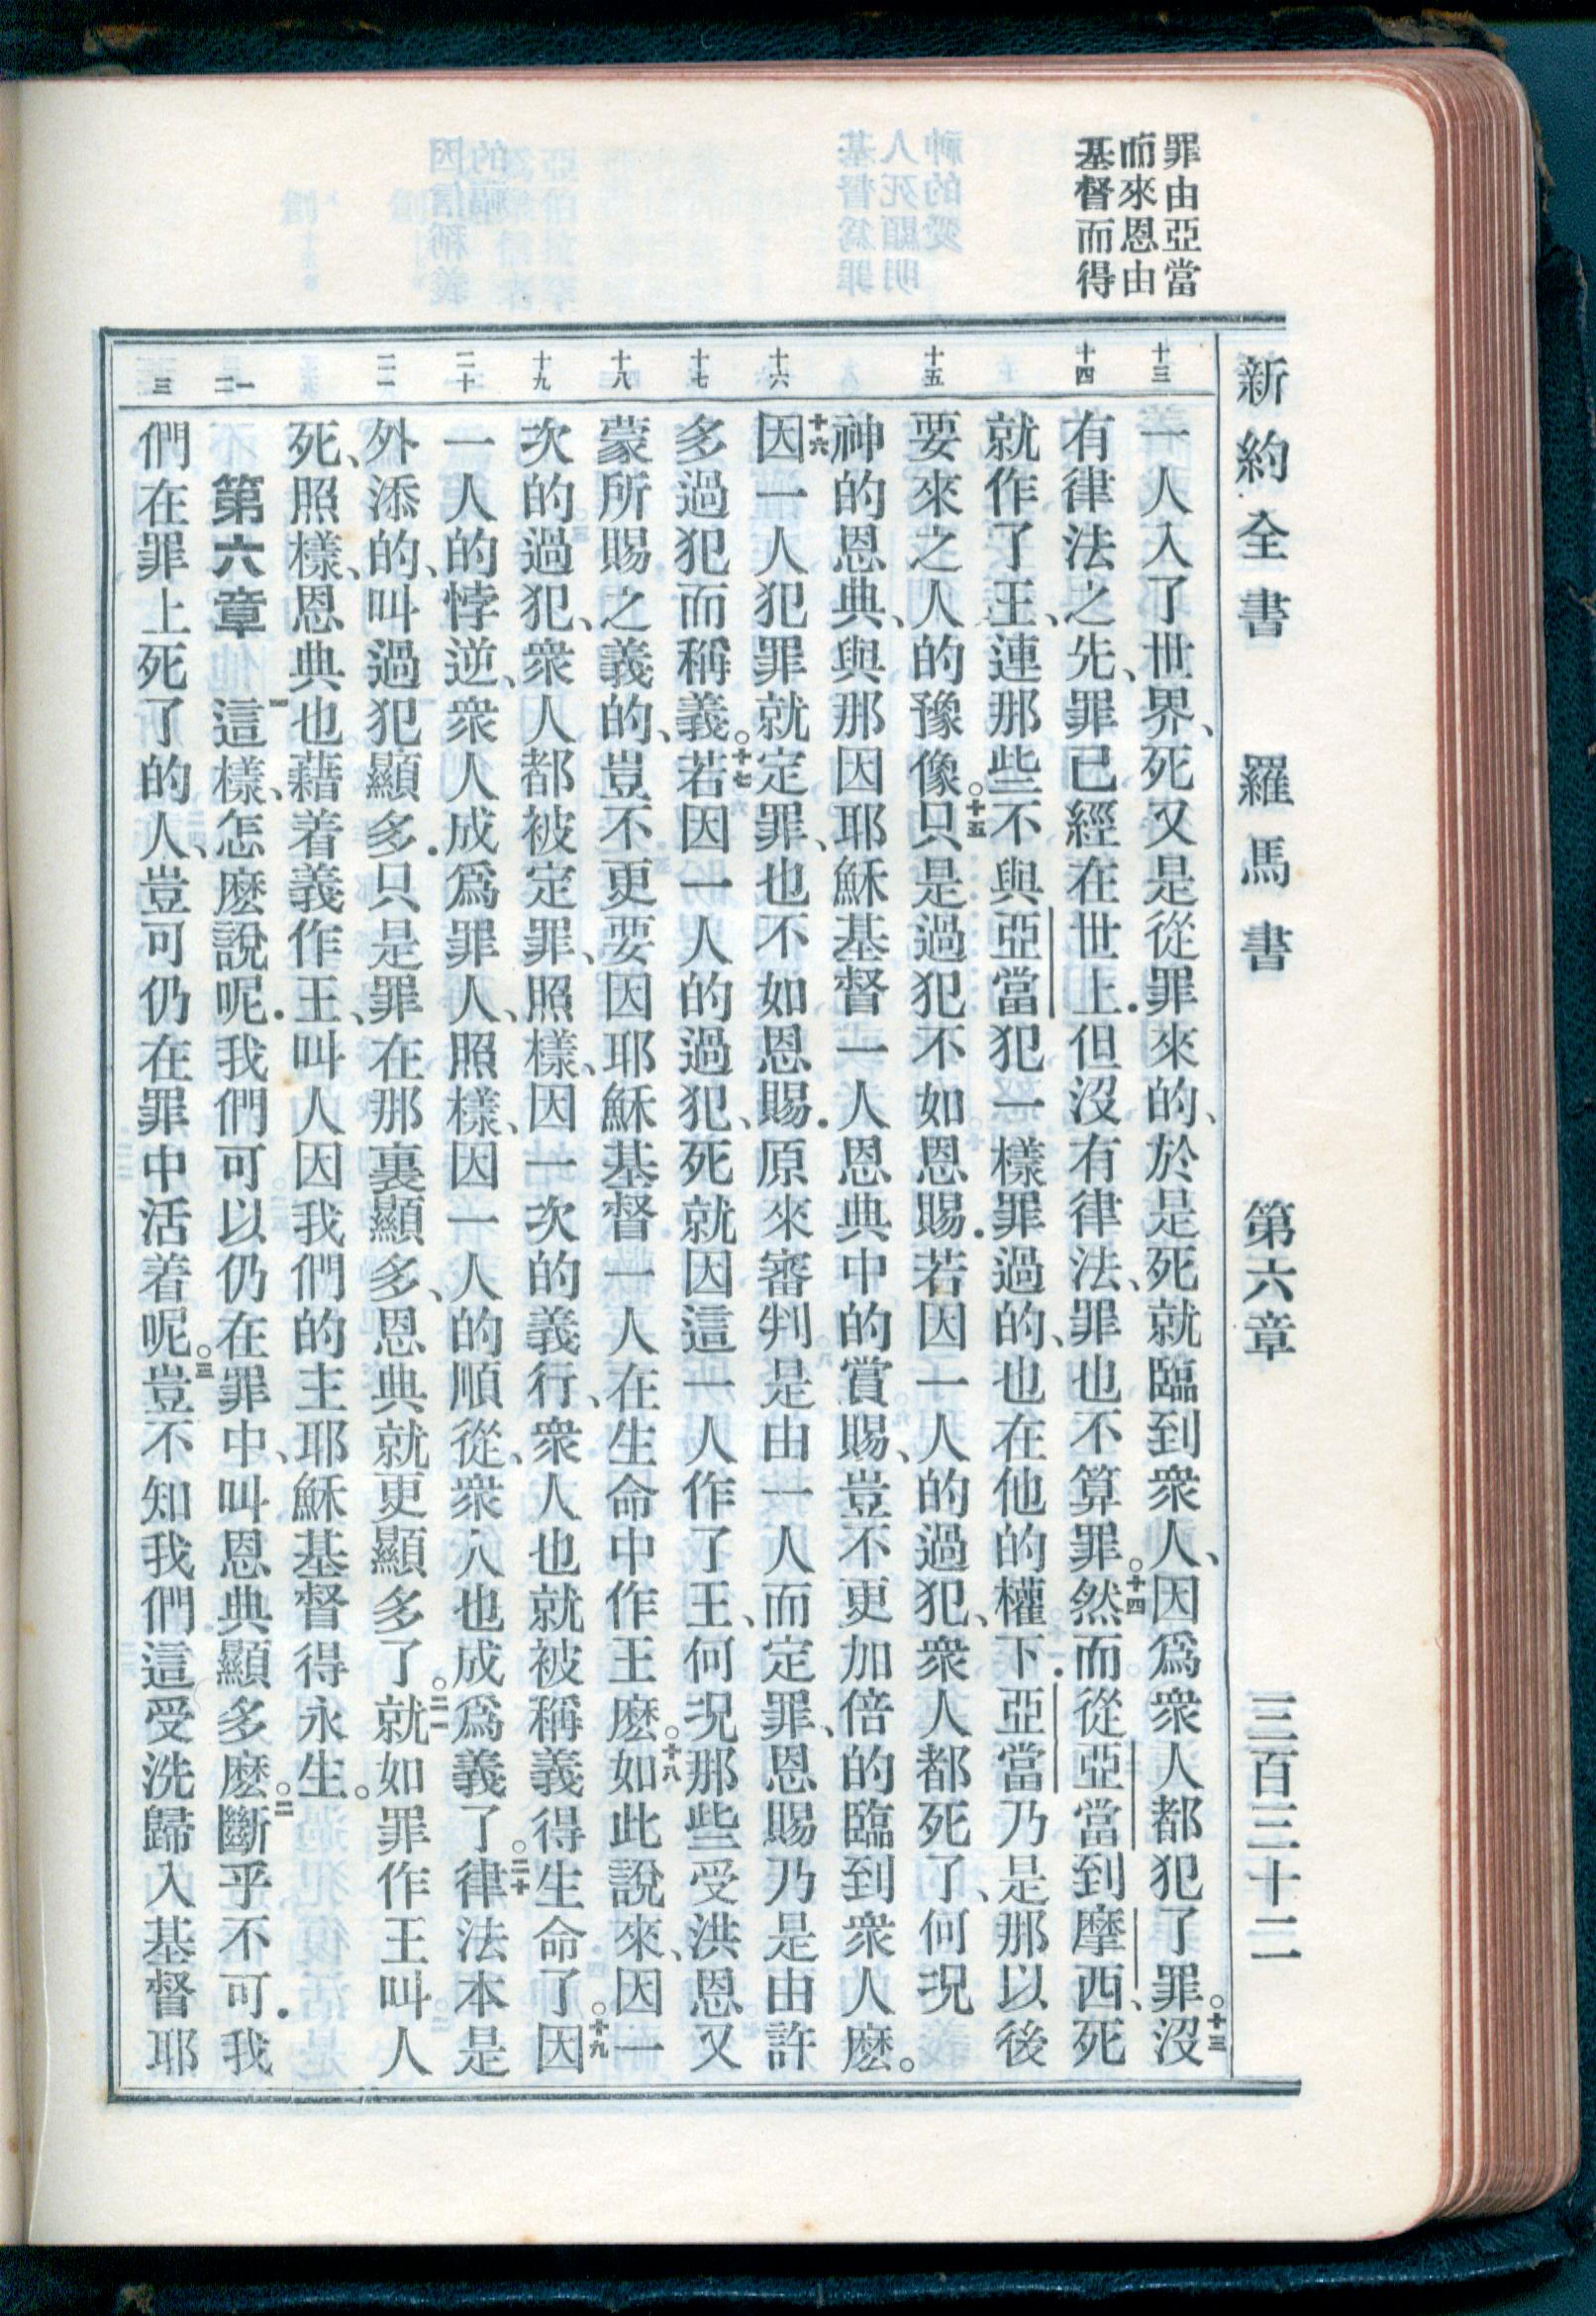 罪由亞當
而來恩由
基督而得
新約全書 羅馬書 第六章 三百三十二
十三
十四
十五
十六
十七
十八
十九
二十
二一
一二
三
一人入了世界、死又是從罪來的、於是死就臨到衆人、因爲衆人都犯了罪。十三沒
有律法之先、罪已經在世上．但沒有律法、罪也不算罪。十四然而從亞當到摩西、死
就作了王、連那些不與亞當犯一樣罪過的、也在他的權下．亞當乃是那以後
要來之人的豫像。十五只是過犯不如恩賜．若因一人的過犯、衆人都死了、何況
神的恩典、與那因耶穌基督一人恩典中的賞賜、豈不更加倍的臨到衆人麼。
十六因一人犯罪就定罪、也不如恩賜．原來審判是由一人而定罪、恩賜乃是由許
多過犯而稱義。十七若因一人的過犯、死就因這一人作了王、何況那些受洪恩又
蒙所賜之義的、豈不更要因耶穌基督一人在生命中作王麼。十八如此說來、因一
次的過犯、衆人都被定罪、照樣、因一次的義行、衆人也就被稱義得生命了。十九因
一人的悖逆、衆人成爲罪人、照樣、因一人的順從、衆人也成爲義了。二十律法本是
外添的、叫過犯顯多．只是罪在那裏顯多、恩典就更顯多了。二一就如罪作王叫人
死、照樣、恩典也藉着義作王、叫人因我們的主耶穌基督得永生。
第六章 一這樣、怎麼說呢．我們可以仍在罪中、叫恩典顯多麼。二斷乎不可．我
們在罪上死了的人、豈可仍在罪中活着呢。三豈不知我們這受洗歸入基督耶